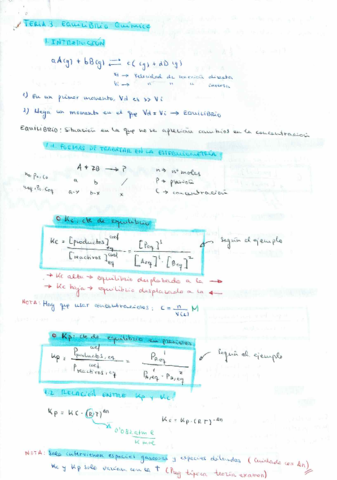 TEMA 3. EQUILIBRIO QUÍMICO
1. INTRODUCCIÓN
aA(g) + bB(g) ⇌ c C(g) + dD(g)
Vd → Velocidad de reacción directa
Vi → " " " inversa
1) En un primer momento, Vd es >> Vi
2) Llega un momento en el que Vd = Vi → EQUILIBRIO
EQUILIBRIO: Situación en la que no se aprecian cambios en la concentración
1.1. FORMAS DE TRABAJAR EN LA ESTEQUIOMETRÍA:
A + 2B → P
n → nº moles
P → presión
C → concentración
a b /
a-x x
Kc: cte de equilibrio
Kc = [productos]eq^coef / [reactivos]eq^coef = [Peq]^1 / [Aeq]^1 · [Beq]^2
Según el ejemplo
→ Kc alta → equilibrio desplazado a la →
→ Kc baja → equilibrio desplazado a la ←
NOTA: Hay que usar concentraciones: C = n / V(L) M
Kp: cte de equilibrio en presiones
Kp = P productos, eq^coef / P reactivos, eq^coef = P P,eq^1 / P A,eq^1 · P B,eq^2
Según el ejemplo
1.2. RELACIÓN ENTRE Kp y Kc
Kp = Kc · (RT)^Δn
Kc = Kp · (RT)^-Δn
0'082 atm·L / K·mol
NOTA: Solo intervienen especies gaseosas y especies disueltas (Cuidado con Δn)
Kc y Kp solo varían con la T